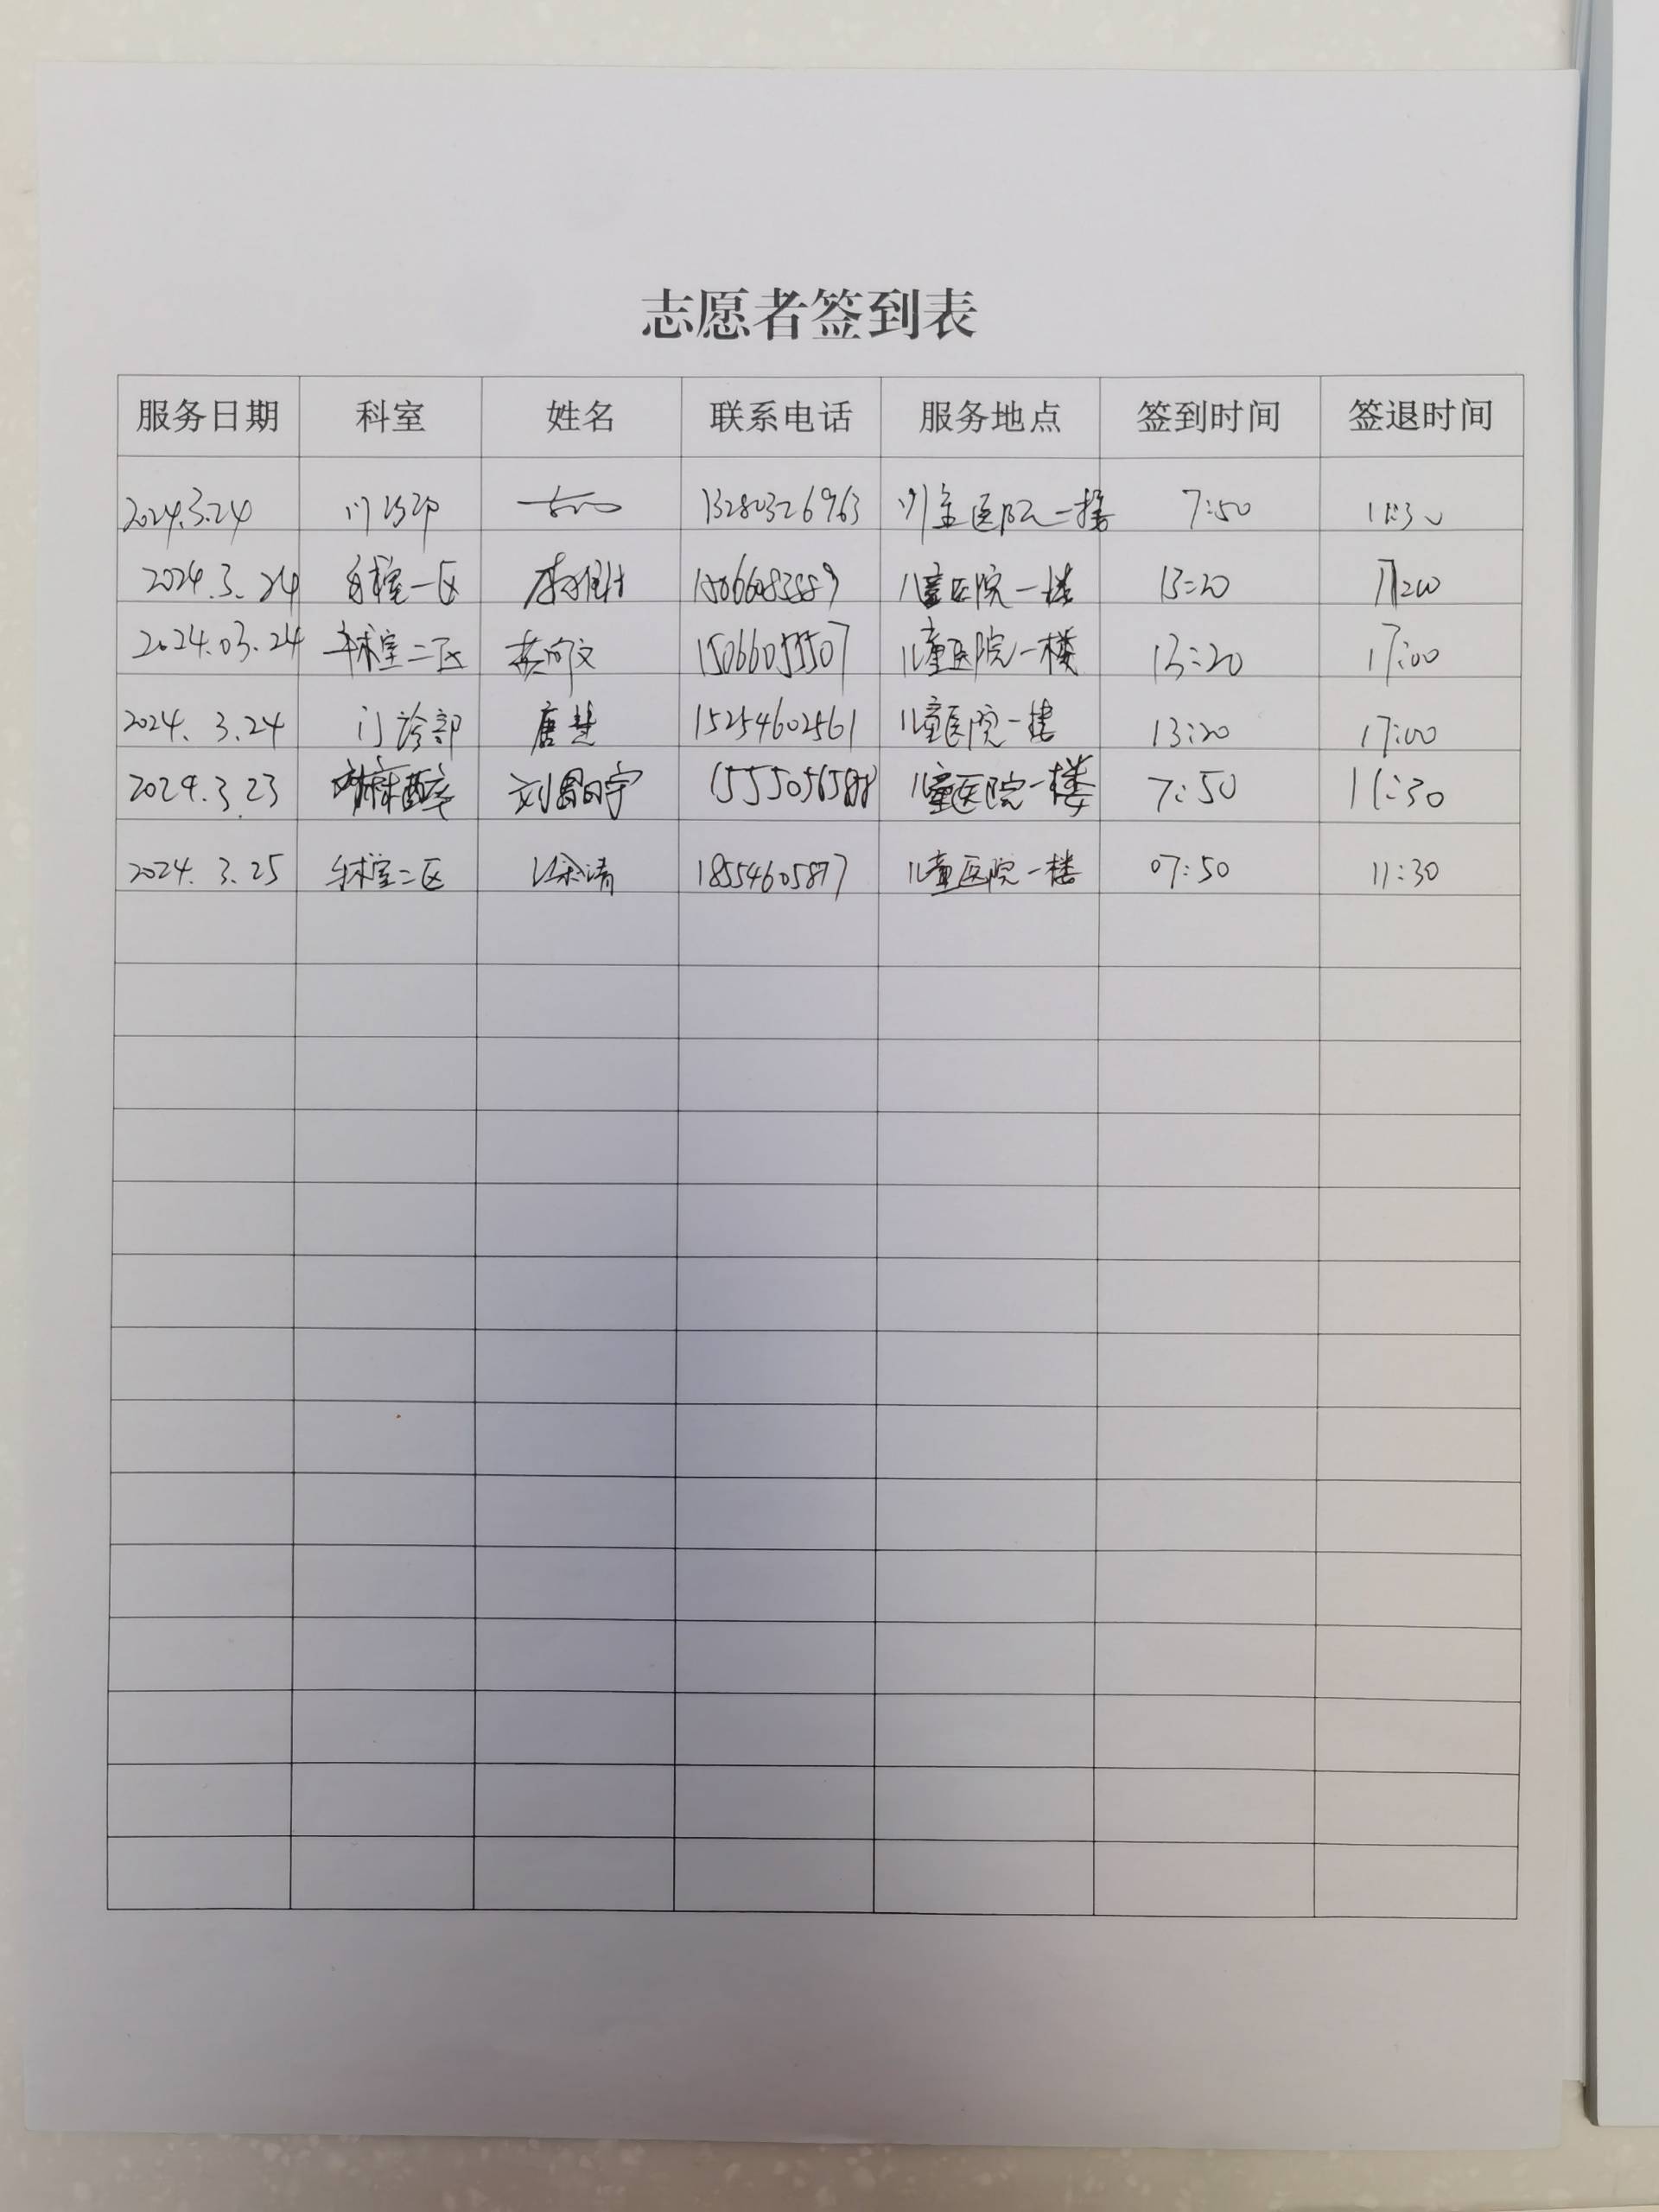 志愿者签到表
服务日期 科室 姓名 联系电话 服务地点 签到时间 签退时间
2024.3.24 门诊部 13280326963 儿童医院一楼 7:50 11:30
2024.3.24 一区 儿童医院一楼 13:20
2024.03.24 手术室二区 15066055507 儿童医院一楼 13:20 17:00
2024.3.24 门诊部 唐慧 15254602561 儿童医院一楼 13:20 17:00
2024.3.23 麻醉 儿童医院一楼 7:50 11:30
2024.3.25 手术室二区 18554605877 儿童医院一楼 07:50 11:30